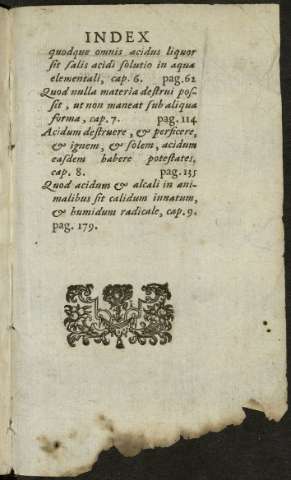 INDEX
quodque omnis acidus liquor
sit salis acidi solutio in aqua
elementali, cap. 6. pag. 62
Quod nulla materia destrui pos-
sit, ut non maneat sub aliqua
forma, cap. 7. pag. 114
Acidum destruere, & perficere,
& ignem, & solem, acidum
easdem habere potestates,
cap. 8. pag. 135
Quod acidum & alcali in ani-
malibus sit calidum innatum,
& humidum radicale, cap. 9.
pag. 179.